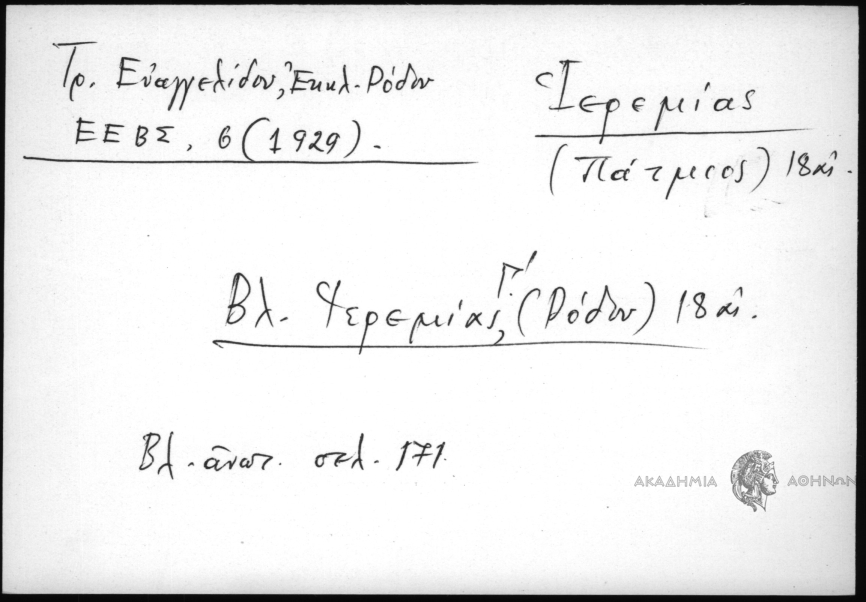 Τρ. Εὐαγγελίδου, Ἐκκλ. Ρόδου
ΕΕΒΣ, 6 (1929).
Ἱερεμίας
(Πάτμιος) 18 αἰ.
Βλ. Ἱερεμίας Γ΄, (Ρόδου) 18 αἰ.
Βλ. ἄνωτ. σελ. 171.
ΑΚΑΔΗΜΙΑ ΑΘΗΝΩΝ